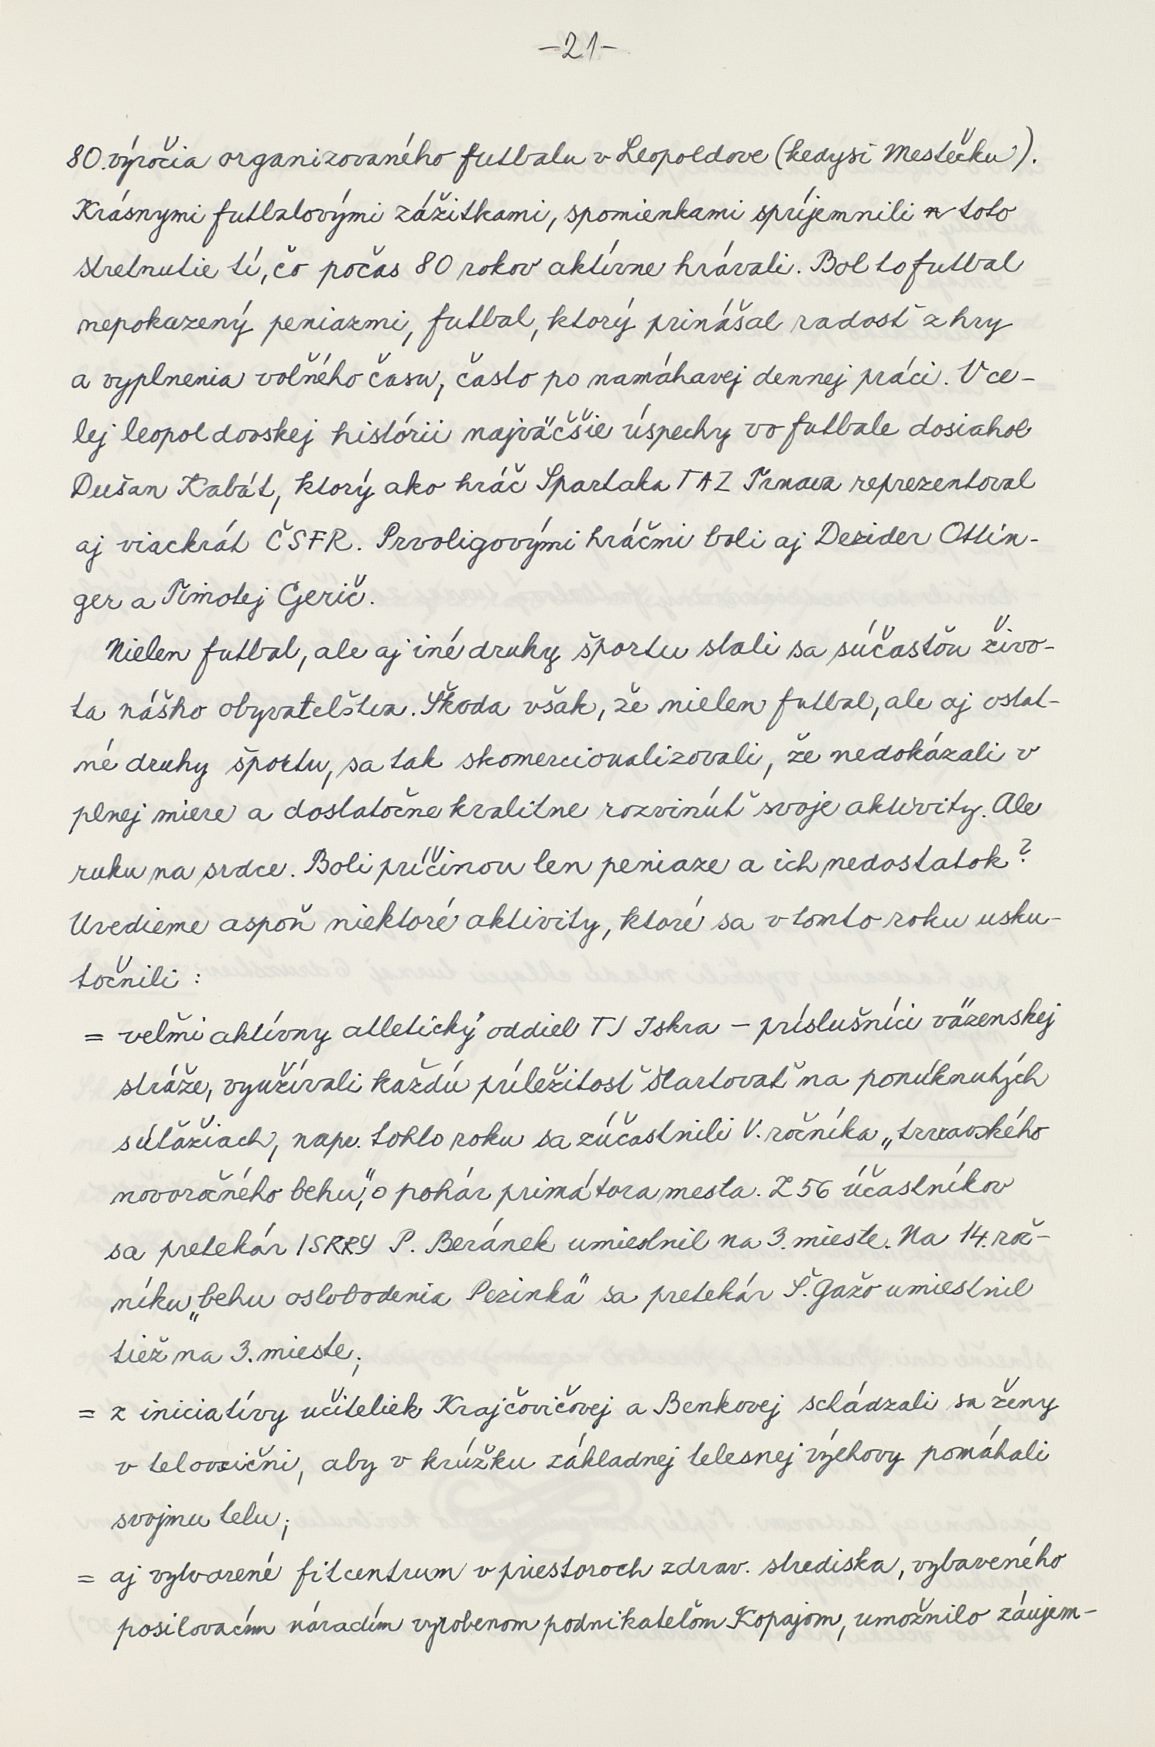 -21-
80. výročia organizovaného futbalu v Leopoldove (kedysi Mestečku).
Krásnymi futbalovými zážitkami, spomienkami spríjemnili toto
stretnutie tí, čo počas 80 rokov aktívne hrávali. Bol to futbal
nepokazený peniazmi, futbal, ktorý prinášal radosť z hry
a vyplnenia voľného času, často po namáhavej dennej práci. V ce-
lej leopoldovskej histórii najväčšie úspechy vo futbale dosiahol
Dušan Kabát, ktorý ako hráč Spartaka TAZ Trnava reprezentoval
aj viackrát ČSFR. Prvoligovými hráčmi boli aj Dezider Ottin-
ger a Timotej Gerič.
Nielen futbal, ale aj iné druhy športu stali sa súčasťou živo-
ta nášho obyvateľstva. Škoda však, že nielen futbal, ale aj ostat-
né druhy športu, sa tak skomercionalizovali, že nedokázali v
plnej miere a dostatočne kvalitne rozvinúť svoje aktivity. Ale
ruku na srdce. Boli príčinou len peniaze a ich nedostatok?
Uvedieme aspoň niektoré aktivity, ktoré sa v tomto roku usku-
točnili :
= veľmi aktívny atletický oddiel TJ Iskra - príslušníci väzenskej
stráže, využívali každú príležitosť štartovať na ponúknutých
súťažiach, napr. tohto roku sa zúčastnili V. ročníka „trnavského
novoročného behu", o pohár primátora mesta. Z 56 účastníkov
sa pretekár ISKRY P. Beránek umiestnil na 3. mieste. Na 14. roč-
níku „behu oslobodenia Pezinka" sa pretekár Š. Gažo umiestnil
tiež na 3. mieste;
= z iniciatívy učiteliek Krajčovičovej a Benkovej schádzali sa ženy
v telovični, aby v krúžku základnej telesnej výchovy pomáhali
svojmu telu;
= aj vytvorené fitcentrum v priestoroch zdrav. strediska, vybaveného
posilovacím náradím vyrobenom podnikateľom Kopajom, umožnilo záujem-